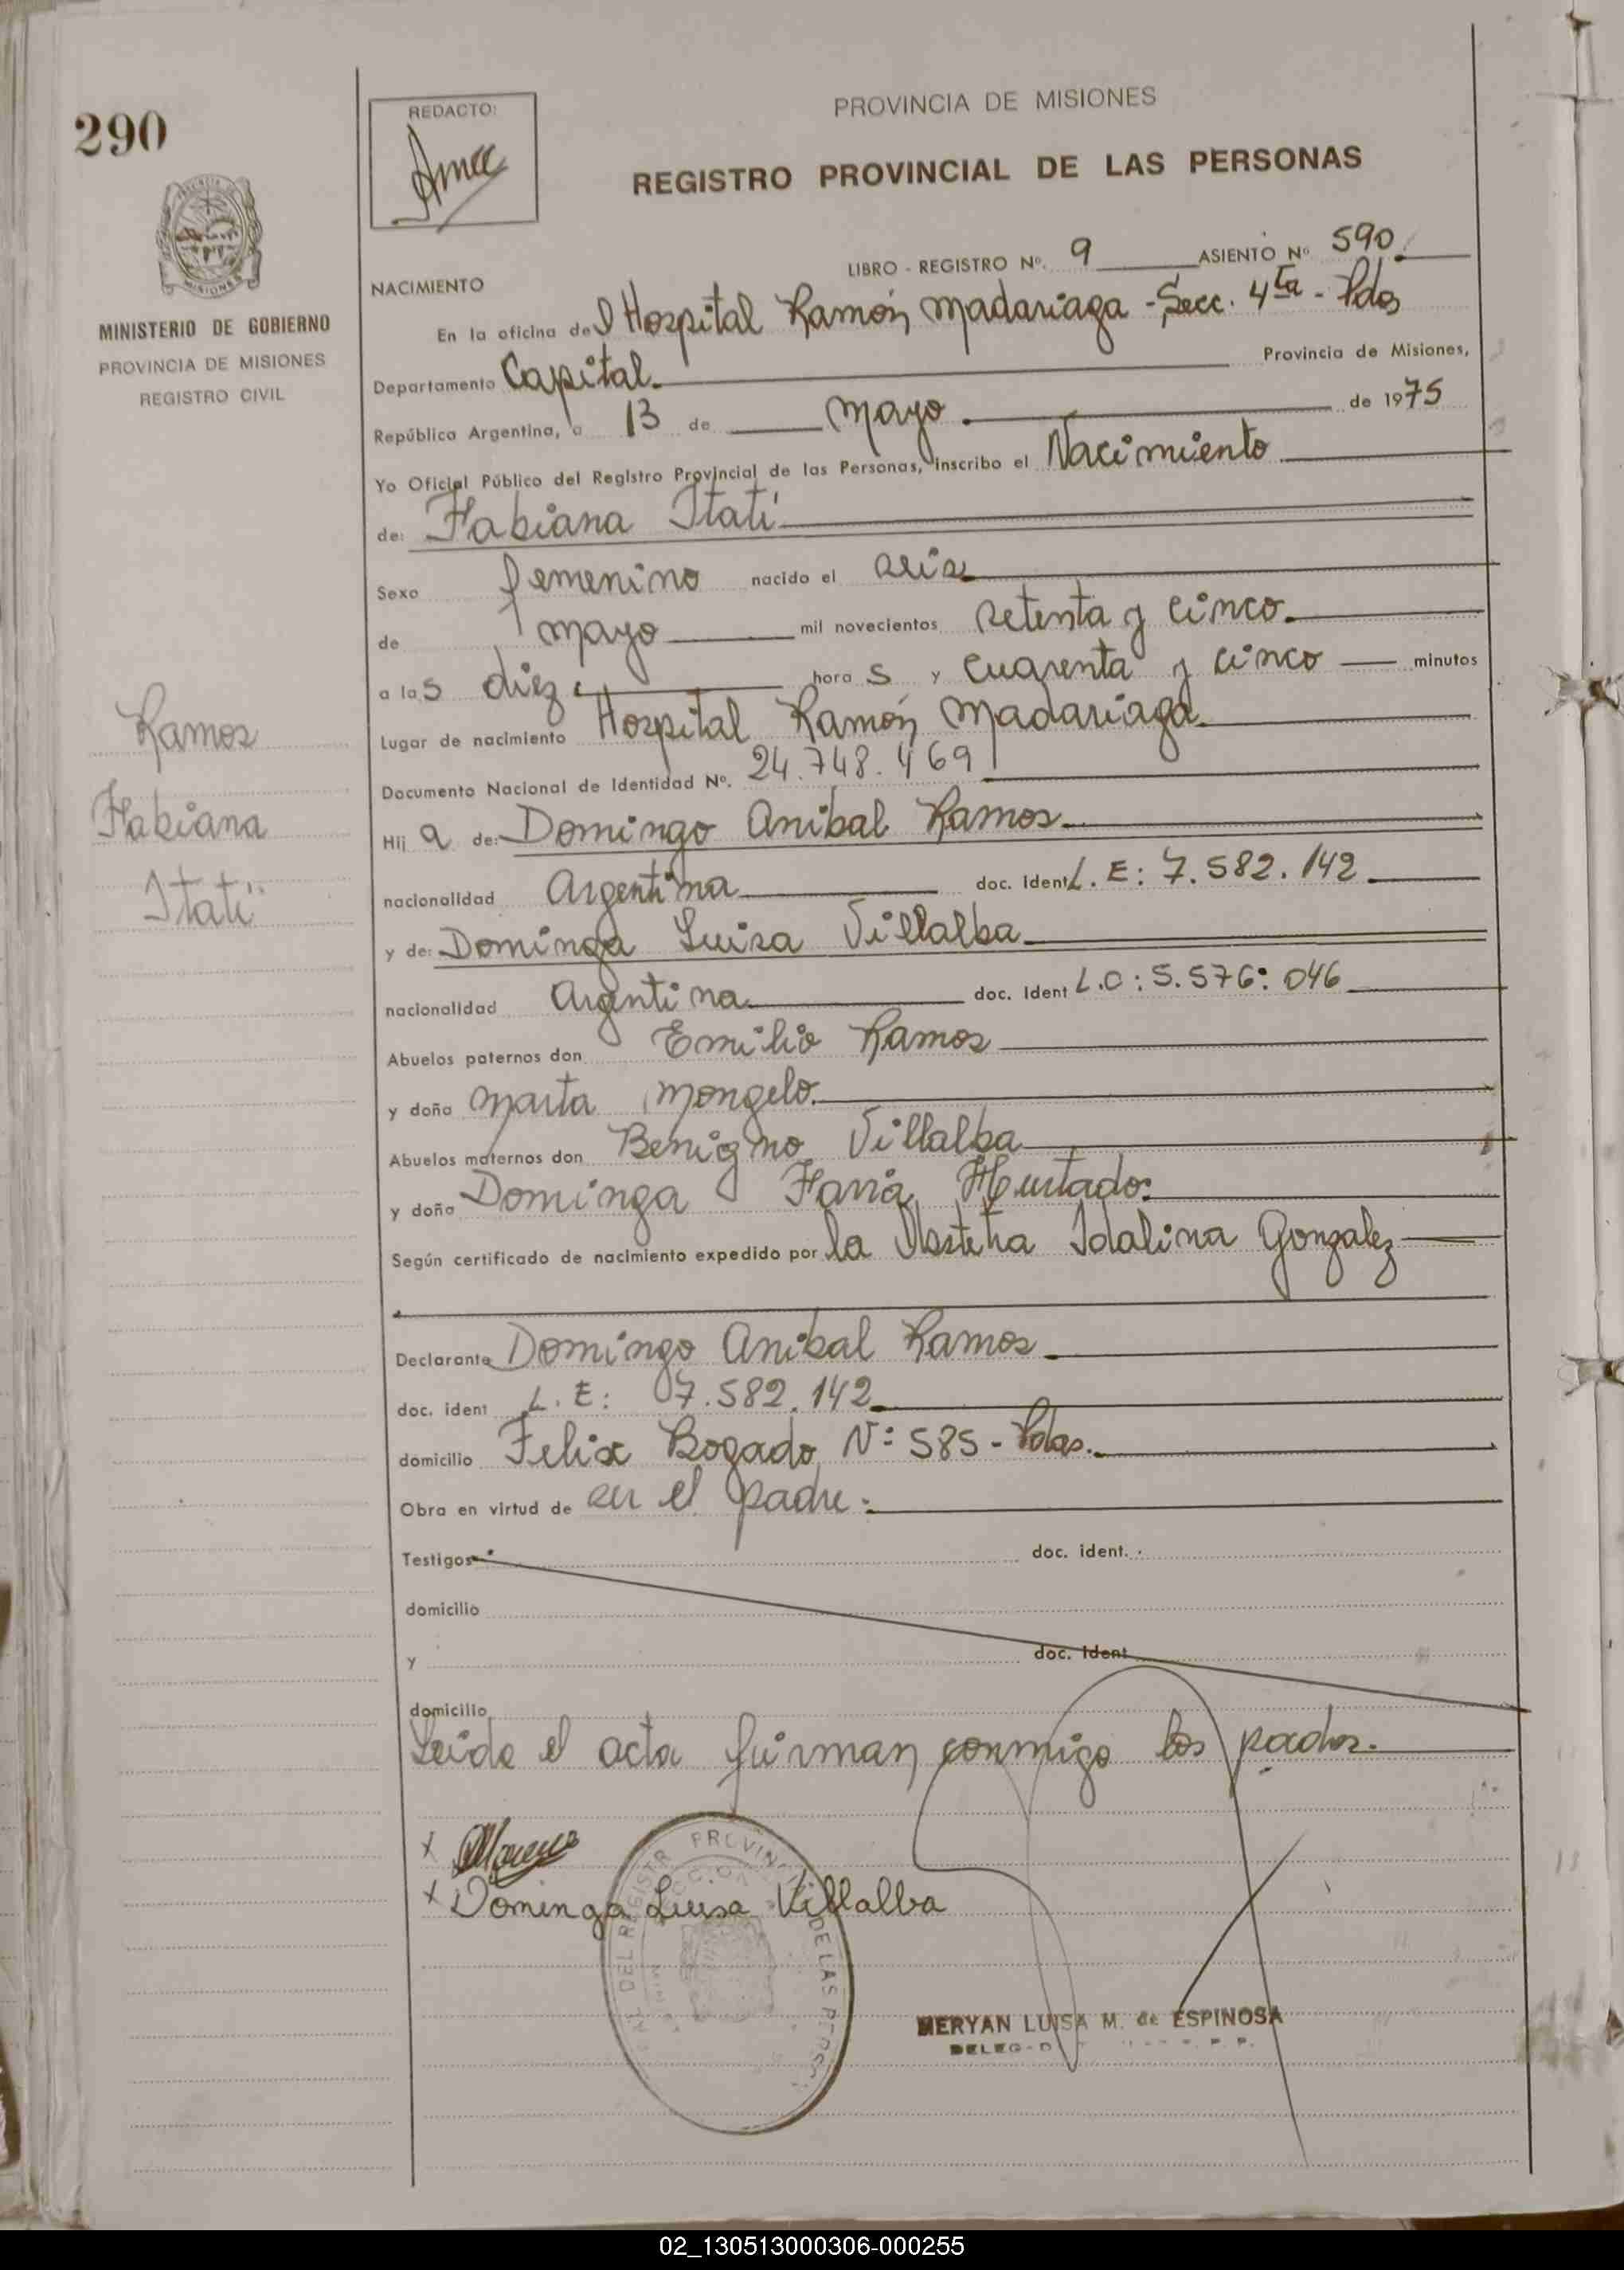 290
REDACTO:
PROVINCIA DE MISIONES
REGISTRO PROVINCIAL DE LAS PERSONAS
MINISTERIO DE GOBIERNO
PROVINCIA DE MISIONES
REGISTRO CIVIL
LIBRO - REGISTRO Nº. 9 ASIENTO Nº 590
NACIMIENTO
En la oficina del Hospital Ramón Madariaga - Secc. 4ta - Pdas
Departamento Capital. Provincia de Misiones,
República Argentina, a 13 de mayo de 1975
Yo Oficial Público del Registro Provincial de las Personas, inscribo el Nacimiento
de: Fabiana Itatí
Sexo femenino nacido el seis
de mayo mil novecientos setenta y cinco.
a las diez hora s y cuarenta y cinco minutos
Lugar de nacimiento Hospital Ramón Madariaga.
Documento Nacional de Identidad Nº. 24.748.469
Hij a de: Domingo Anibal Ramos
nacionalidad Argentina doc. Ident L.E: 7.582.142
y de: Dominga Luisa Villalba
nacionalidad Argentina doc. Ident L.C: 5.576.046
Abuelos paternos don Emilio Ramos
y doña Marta Mongelo.
Abuelos maternos don Benigno Villalba
y doña Dominga Farra Hurtado.
Según certificado de nacimiento expedido por la Obstetra Idalina Gonzalez
Declarante Domingo Anibal Ramos
doc. ident L.E: 07.582.142
domicilio Felix Bogado Nº 585 - Pdas.
Obra en virtud de ser el padre.
Testigos doc. ident.
domicilio
y doc. ident
domicilio
Leida el acta firman conmigo los padres.
Ramos
Fabiana
Itatí
x
x Dominga Luisa Villalba
MERYAN LUISA M. de ESPINOSA
02_130513000306-000255